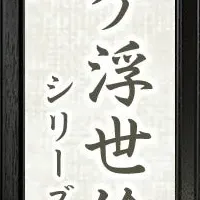 浮世絵
シリーズ